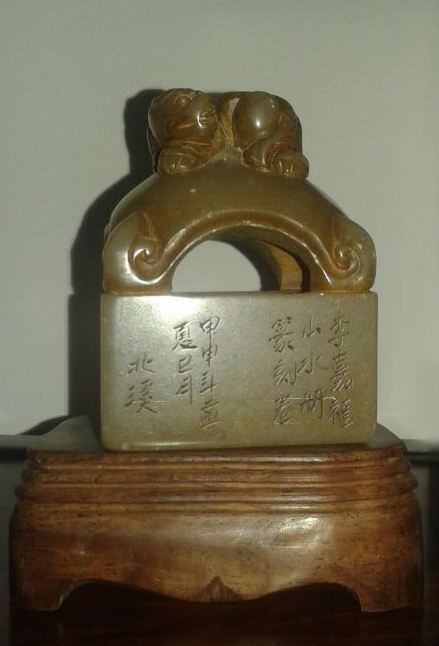 李嘉福
山水册
篆刻卷
甲申年孟
夏巳月
北溪